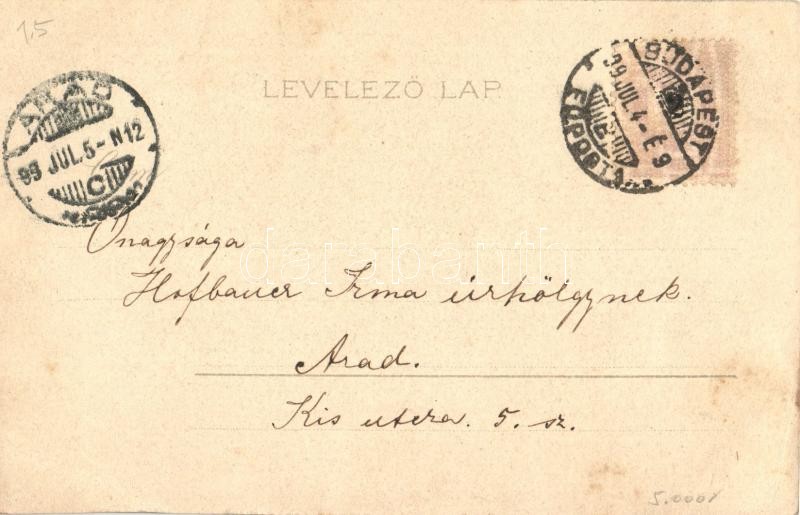 1,5
LEVELEZŐ LAP.
BUDAPEST
99 JUL. 4 - É 9
FŐPOSTA
ARAD
99 JUL. 5 - N12
C
Őnagysága
Hofbauer Irma úrhölgynek.
Arad.
Kis utcza. 5. sz.
darabanth